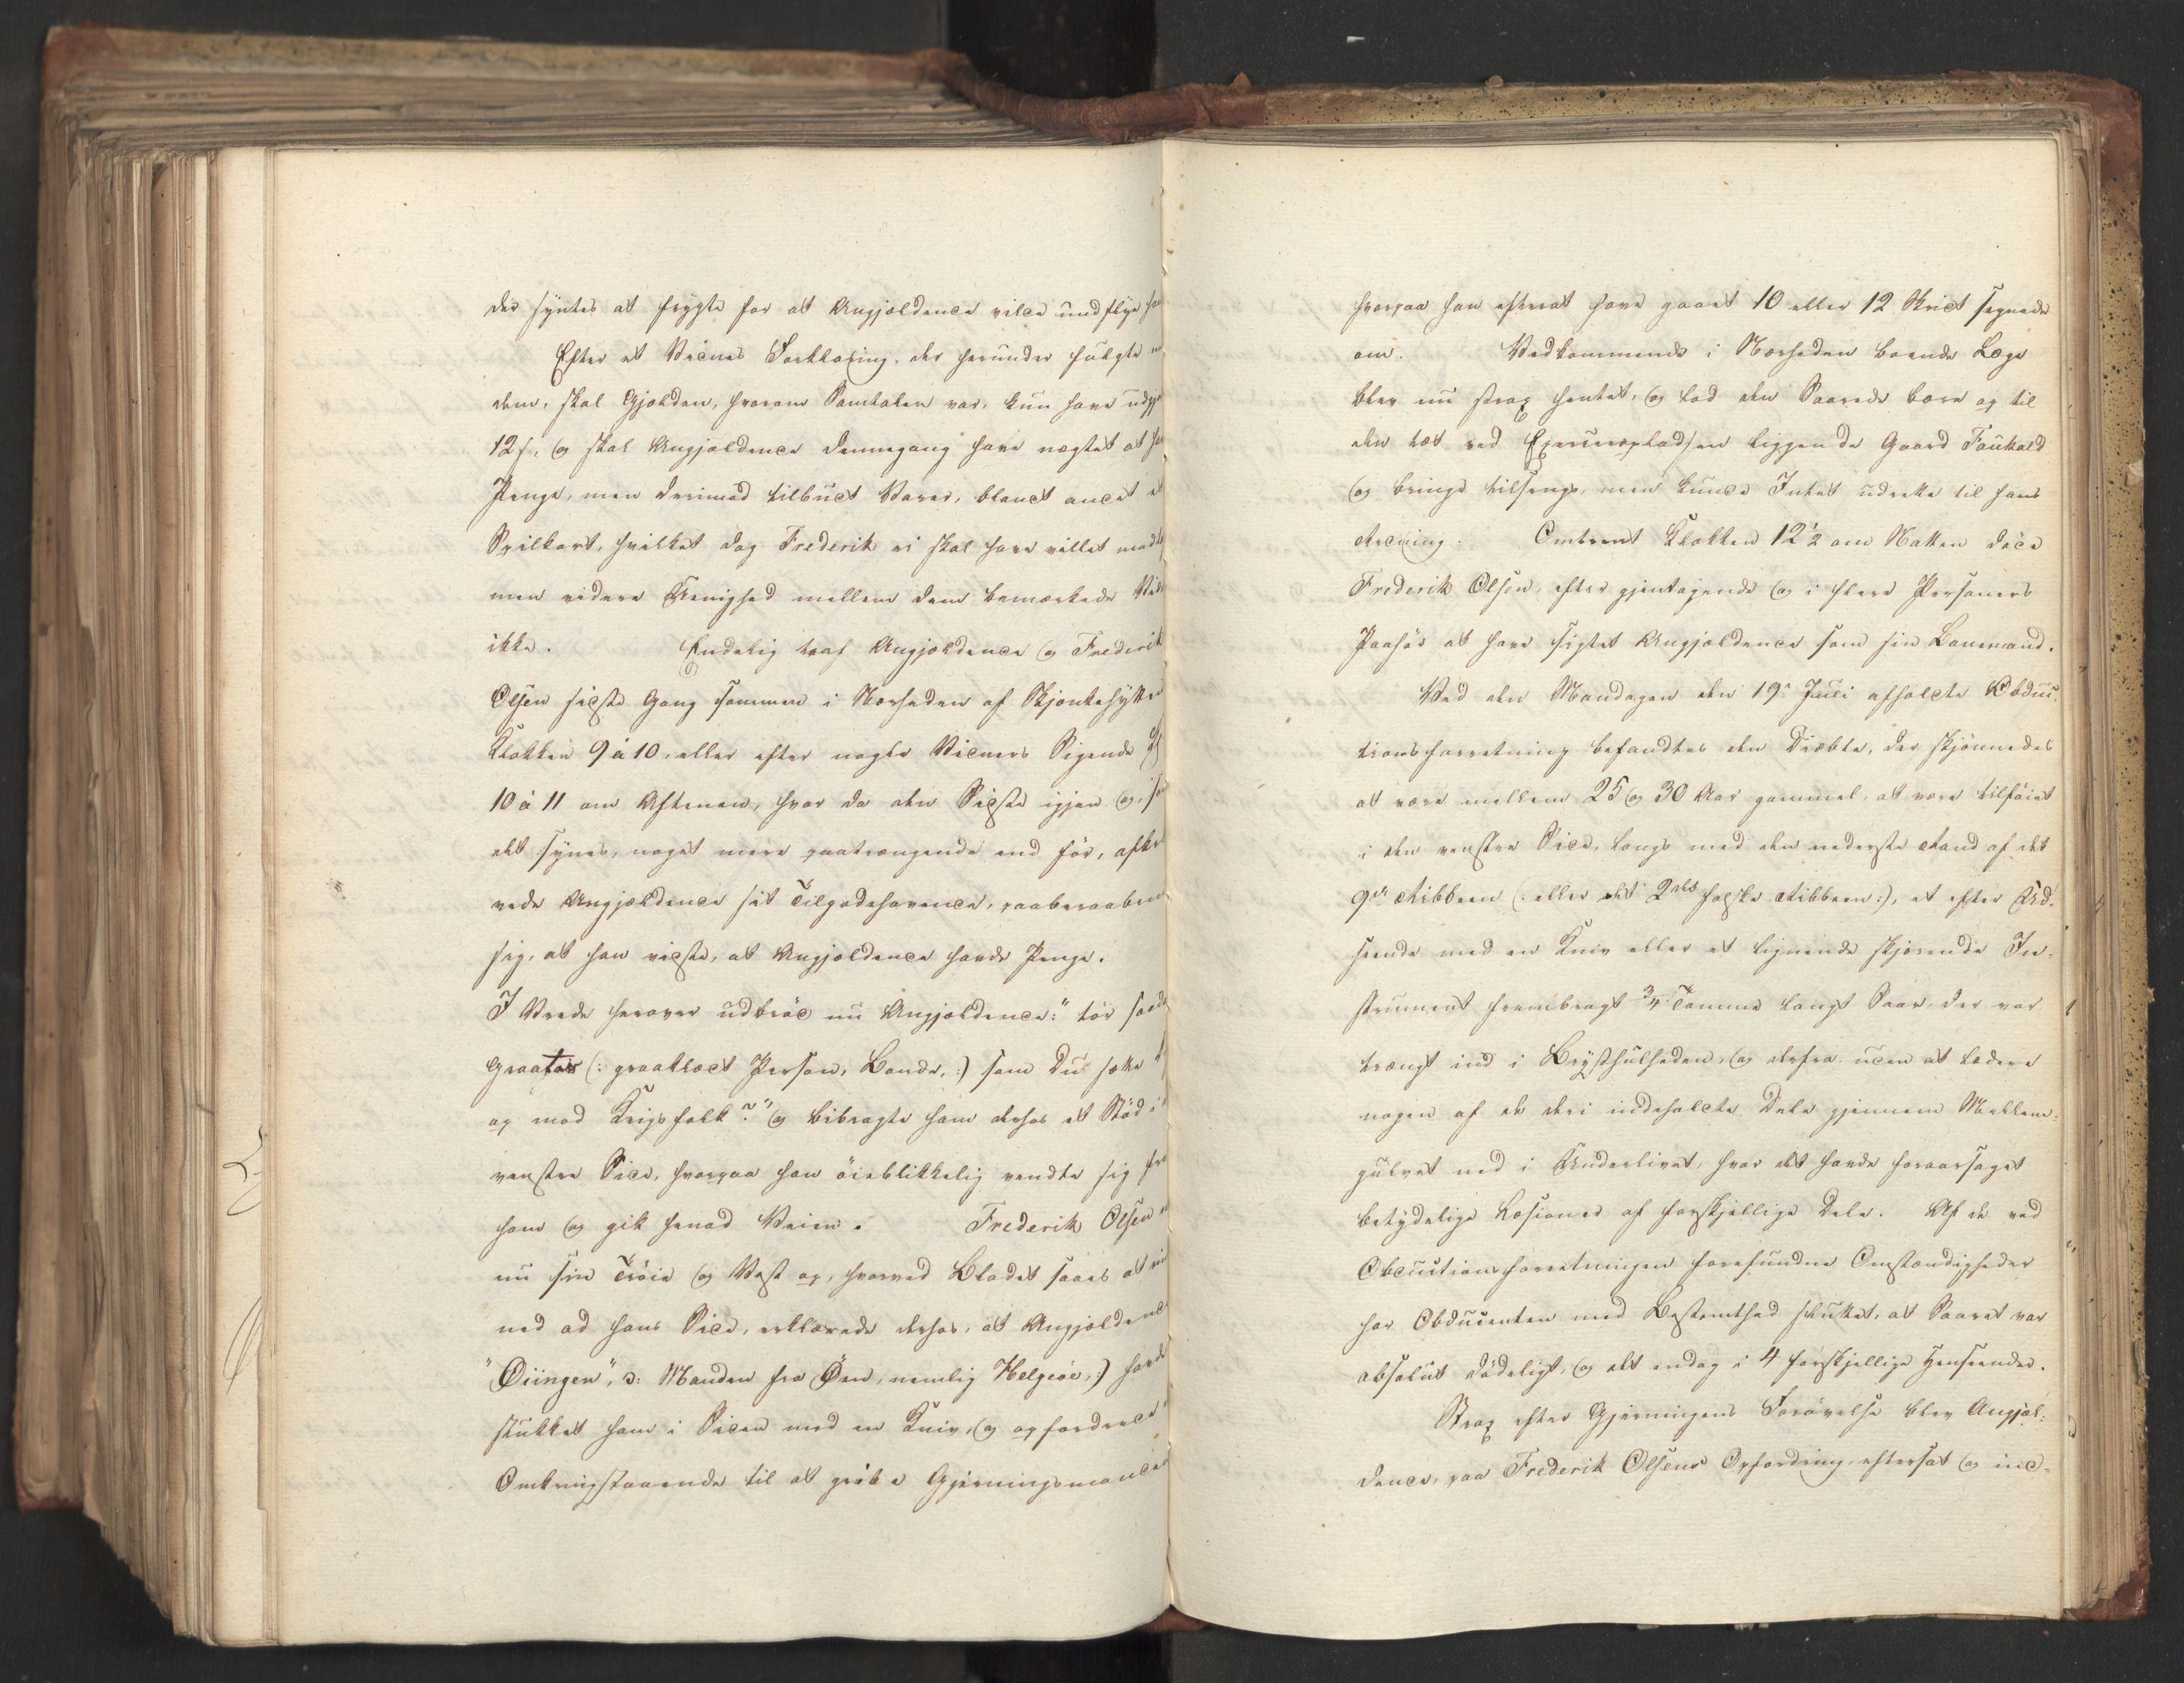 der syntes at frygte for at Angjældende vilde undflye ham
Efter et Vidnes Forklaring, der herunder fulgte
dem, skal Gjælden, hvorom Samtalen var, kun have udgjo
12 s., og skal Angjældende dennegang have nægtet at have
Penge, men derimod tilbudt Varer, blandt andet et
Spilkort, hvilket dog Frederik ei skal have villet modta
men videre Uenighed mellem dem bemærkede Vidn
ikke. Endelig traf Angjældende og Frederik
Olsen sidste Gang sammen i Nærheden af Skjænkehytten
Klokken 9 à 10, eller efter nogle Vidners Sigende
10 à 11 om Aftenen, hvor da den Sidste igjen og, som
det synes, noget mere paatrængende end før, afkræ
vede Angjældende sit Tilgodehavende, paaberaabende
sig, at han vidste, at Angjældende havde Penge.
I Vrede herover udbrød nu Angjældende: "tør saada
Graatas (: graaklædt Person, Bonde, :) som Du sætte
op mod Krigsfolk?" og bibragte ham derhos et Stød i
venstre Side, hvorpaa han øieblikkelig vendte sig fra
ham og gik henad Veien. Frederik Olsen
nu sin Trøie og Vest op, hvorved Blodet saaes at
ned ad hans Side, erklærede derhos, at Angjældende
"Øiingen", ɔ: Manden fra Øen, nemlig Helgeøe, :) havde
stukket ham i Siden med en Kniv, og opfordrede
Omkringstaaende til at gribe Gjerningsmanden
hvorpaa han efterat have gaaet 10 eller 12 Skridt segnede
om. Vedkommende i Nærheden boende Læge
blev nu strax hentet, og lod den Saarede bære op til
den tæt ved Exerceerpladsen liggende Gaard Faukald
og bringe tilsengs, men kunde Intet udrette til hans
Redning. Omtrent Klokken 12½ om Natten døde
Frederik Olsen, efter gjentagende og i flere Personers
Paahør at have sigtet Angjældende som sin Banemand.
Ved den Mandagen den 19de Juli afholdte Obduc-
tionsforretning befandtes den Dræbte, der skjønnedes
at være mellem 25 og 30 Aar gammel, at være tilføiet
i den venstre Side, langs med den nederste Rand af det
9de Ribbeen (: eller det 2det falske Ribbeen :), et efter Ud-
seende med en Kniv eller et lignende skjærende In-
strument frembragt ¾ Tomme langt Saar, der var
trængt ind i Brysthulheden, og derfra uden at lædere
nogen af de deri indeholdte Dele gjennem Mellem-
gulvet ned i Underlivet, hvor det havde foraarsaget
betydelige Læsioner af forskjellige Dele. Af de ved
Obductionsforretningen forefundne Omstændigheder
har Obducenten med Bestemthed sluttet, at Saaret var
absolut dødeligt, og det endog i 4 forskjellige Henseender.
Strax efter Gjerningens Forøvelse blev Angjæl-
dende, paa Frederik Olsens Opfordring, eftersat og ind-